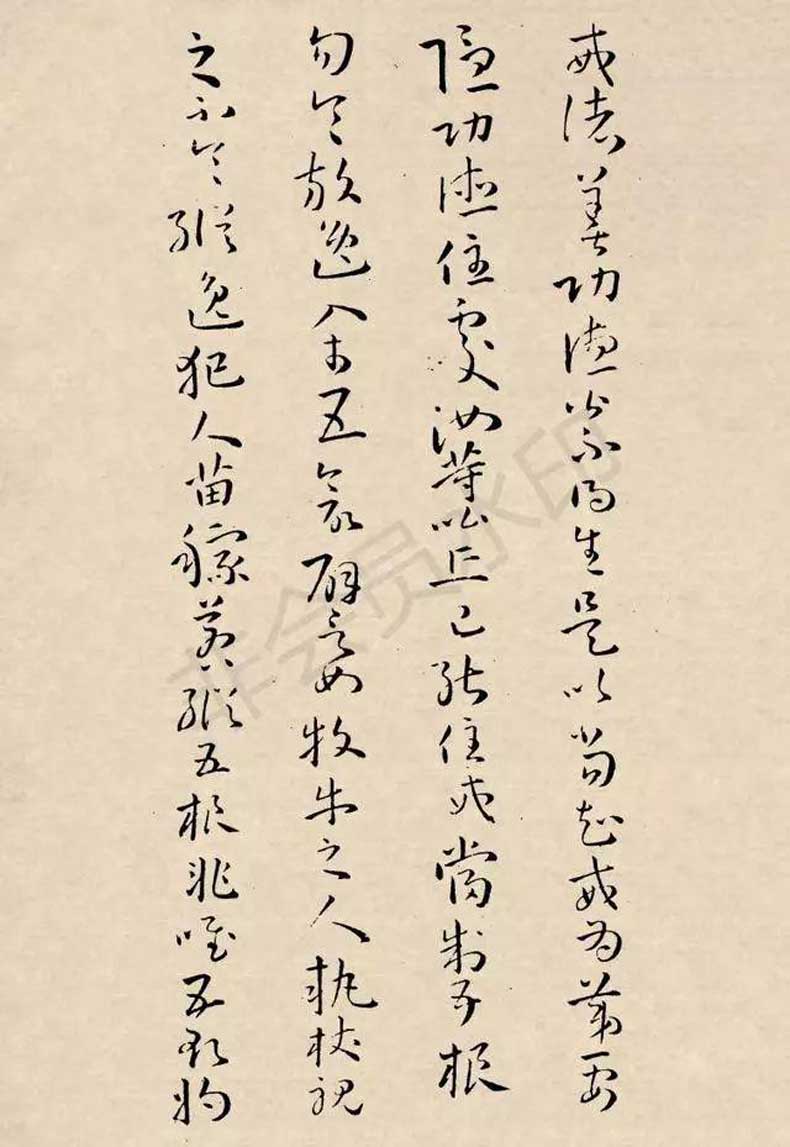 戒諸善功德皆不得生是以當知戒為第一安
隱功德住處汝等比丘已能住戒當制五根
勿令放逸入於五欲譬如牧牛之人執杖視
之不令縱逸犯人苗稼若縱五根非唯五欲將
非会员水印